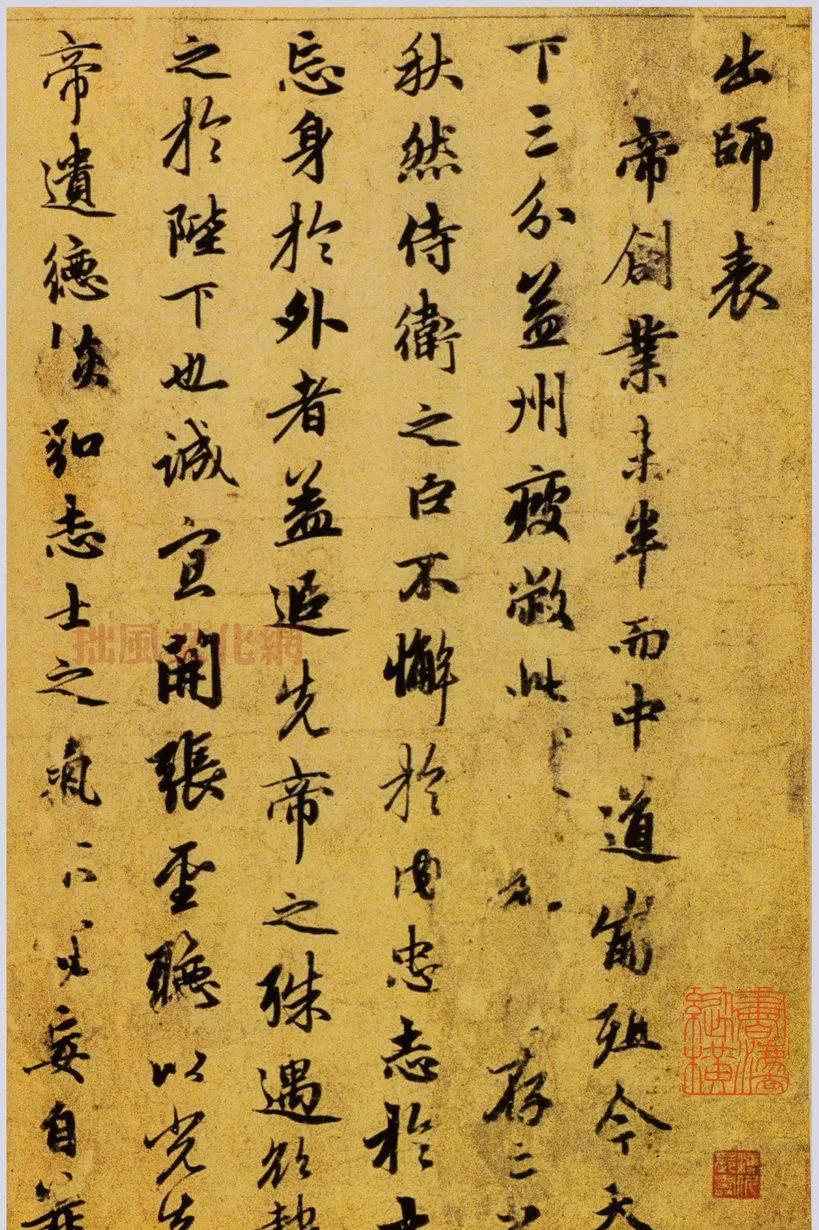 出師表
帝創業未半而中道崩殂今天
下三分益州疲敝此存亡
秋然侍衛之臣不懈於内忠志於士
忘身於外者蓋追先帝之殊遇欲報
之於陛下也誠宜開張聖聽以光先
帝遺德恢弘志士之氣不宜妄自菲
拙風文化網
書法縱橫